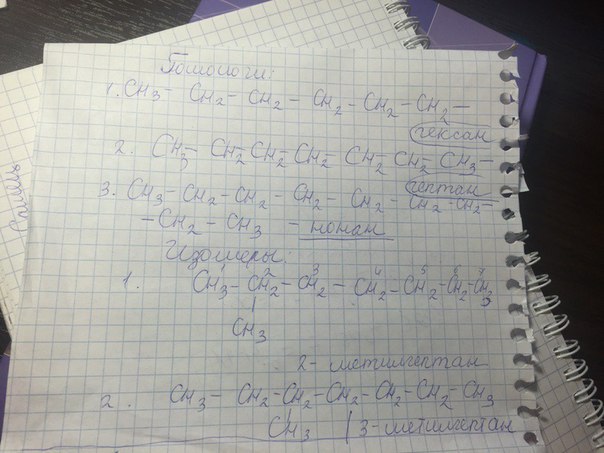 Гомологи:
1. CH3- CH2 - CH2 - CH2 - CH2 - CH2 -
гексан
2. CH3- CH2-CH2-CH2- CH2- CH2- CH3-
гептан
3. CH3- CH2- CH2- CH2- CH2- CH2- CH2-
-CH2 - CH3 - нонан
Изомеры:
1 2 3 4 5 6 7
1. CH3- CH2- CH2- CH2- CH2- CH2- CH3
CH3
2- метилгептан
2. CH3 - CH2-CH2- CH2- CH2- CH2- CH3
CH3 | 3-метилгептан